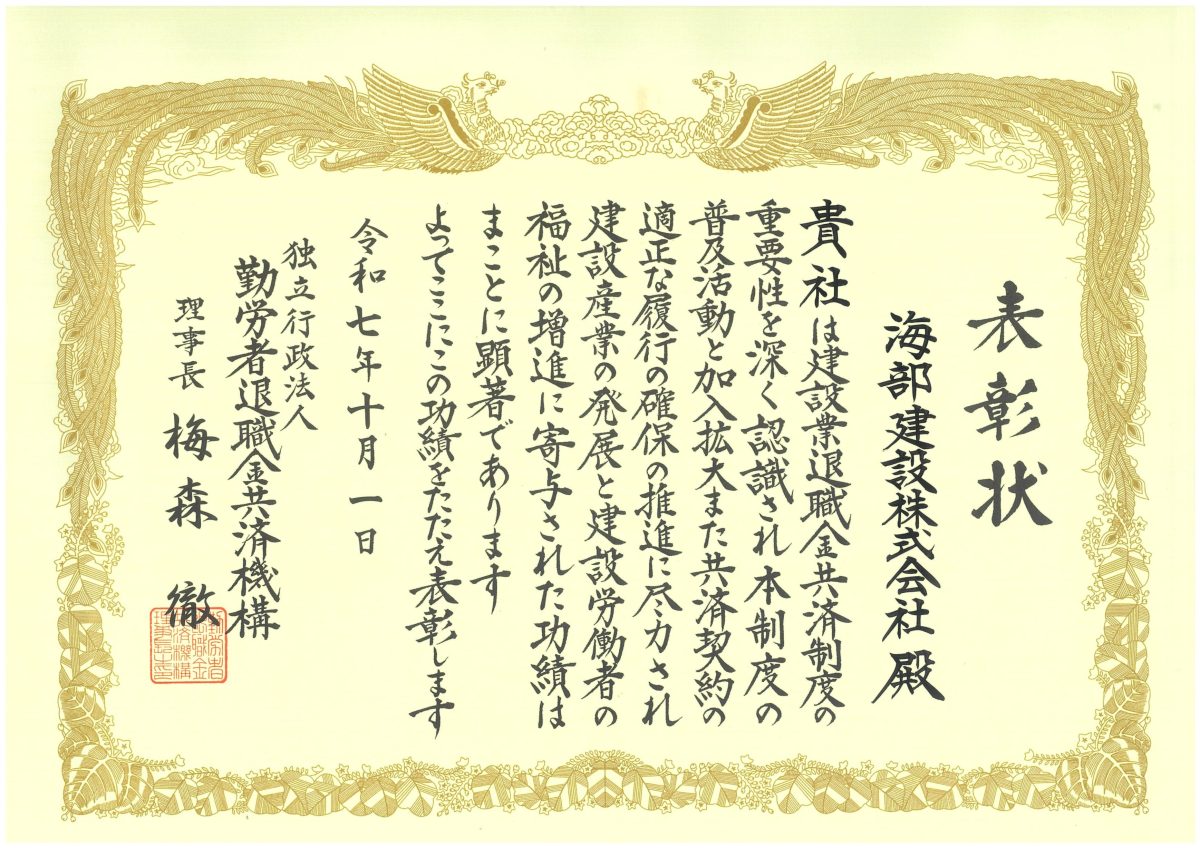 表彰状
海部建設株式会社殿
貴社は建設業退職金共済制度の
重要性を深く認識され本制度の
普及活動と加入拡大また共済契約の
適正な履行の確保の推進に尽力され
建設産業の発展と建設労働者の
福祉の増進に寄与された功績は
まことに顕著であります
よってここにこの功績をたたえ表彰します
令和七年十月一日
独立行政法人
勤労者退職金共済機構
理事長 梅森 徹
勤労者
退職金
共済機構
理事長之印